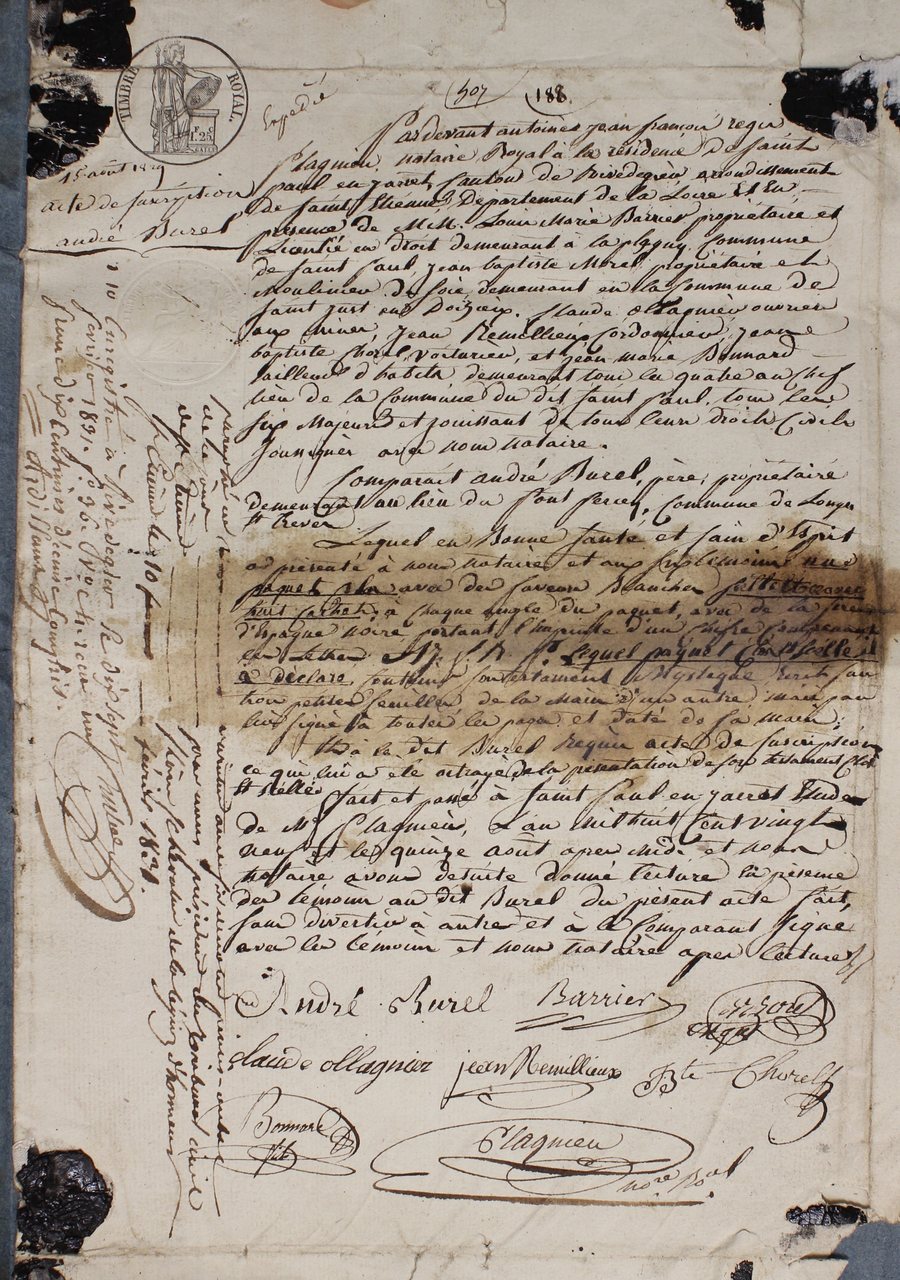 TIMBRE ROYAL
1F 25C
Expédié
507 188
15 août 1829
acte de suscription
andré Burel
Pardevant antoine Jean françois regis
Plagnieu, notaire Royal à la résidence de Saint
paul en jarret, Canton de Rivedegier arrondissement
de Saint Etienne, Département de la Loire Et En
presence de M.M. Louis Marie Barrier propriétaire et
Licentié en droit demeurant à la commune
de Saint Paul, jean baptiste Morel propriétaire et
Moulinier de soie demeurant en la Commune de
Saint just sur Doizieux, Claude ollagnier ouvrier
aux mines, Jean Remillieux Cordonnier, jean
baptiste Chorel voiturier, et jean marie Bonnard
tailleur d'habits demeurant tous les quatre au chef
lieu de la Commune du dit Saint Paul, tous les
six Majeurs et jouissant de tous leurs droits Civils
soussignés avec nous notaire.
Comparait andré Burel, père, propriétaire
demeurant au lieu du Pont , Commune de Longes
et Treves
Lequel en Bonne santé et sain d'Esprit
a présenté à nous notaire et aux six témoins un
paquet clos avec des Blanches
huit cachets à chaque angle du paquet, avec de la cire
d'Espagne noire portant l'Empreinte d'un chifre
en Lettres Lequel paquet Clos et scellé il
à déclaré contenir son testament Mystique écrit sur
petites feuilles de la main d'un autre, mais par
lui signé à toutes les pages et daté de sa main;
Et a le dit Burel requis acte de suscription
ce qui lui a été octroyé de la présentation de son testament Clos
et scellé
Fait et passé à Saint Paul en jarret Etude
de Me Plagnieu, L'an mil huit Cent vingt
neuf Et le quinze août après midi et nous
notaire avons de suite donné lecture en présence
des témoins au dit Burel du présent acte fait,
sans divertir à autre et à le Comparant signé
avec les témoins et nous notaire après lecture
André Burel Barrier
claude ollagnier jean Remillieux Bte Chorel
Bonnard
Plagnieu
nore Roal
Enregistré à Rivedegier le dix sept
février 1831, fo 36
franc dix centimes dixième compris.
de St Etienne
St Etienne le 10
par nous président du tribunal civil
chevalier de la légion d'honneur
février 1831.